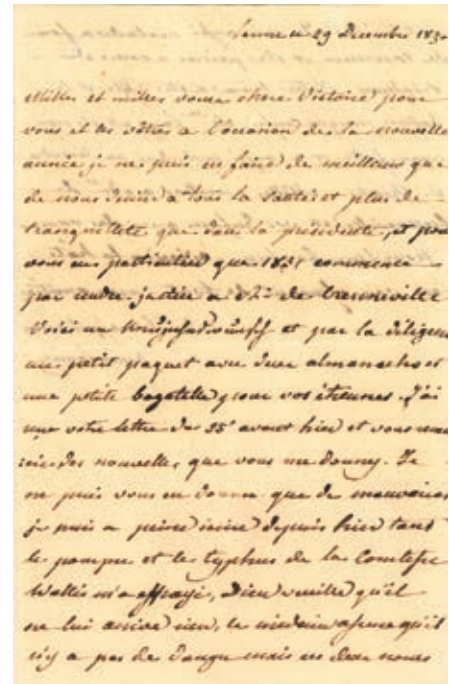 Vienne le 29 Decembre 183
Milles et milles voeux chere Victoire pour
vous et les vôtres a l'occasion de la nouvelle
année je ne puis en faire de meilleurs que
de nous donner a tous la santé et plus de
tranquillitée que dans la présidente, et pour
vous en particulier que 1831 commence
par rendre justice a de
Voici un et par la diligence
un petit paquet avec deux almanachs et
une petite bagatelle pour vos étrennes. J'ai
votre lettre du 25 avant hier et vous remer
cie des nouvelles que vous me donnez. Je
ne puis vous en donner que de mauvaises
je suis a peine depuis hier tant
le et le typhus de la Comtesse
Wallis m'a effrayé, Dieu veuille qu'il
ne lui arrive rien, le medecin assure qu'il
n'y a pas de danger mais ces deux